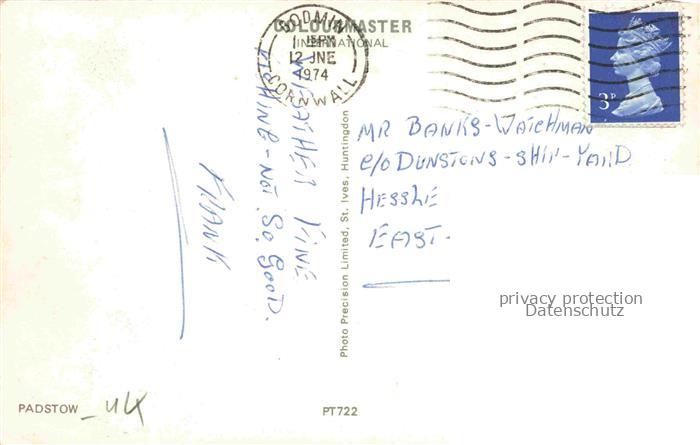 COLOURMASTER
INTERNATIONAL
BODMIN
1 15PM
12 JNE
1974
CORNWALL
3P
WEATHER FINE
FISHING - NOT. SO. GOOD.
FRANK
Photo Precision Limited, St. Ives, Huntingdon
MR BANKS - WATCHMAN
C/O DUNSTONS - SHIP - YARD
HESSLE
EAST.
privacy protection
Datenschutz
PADSTOW - UK
PT722